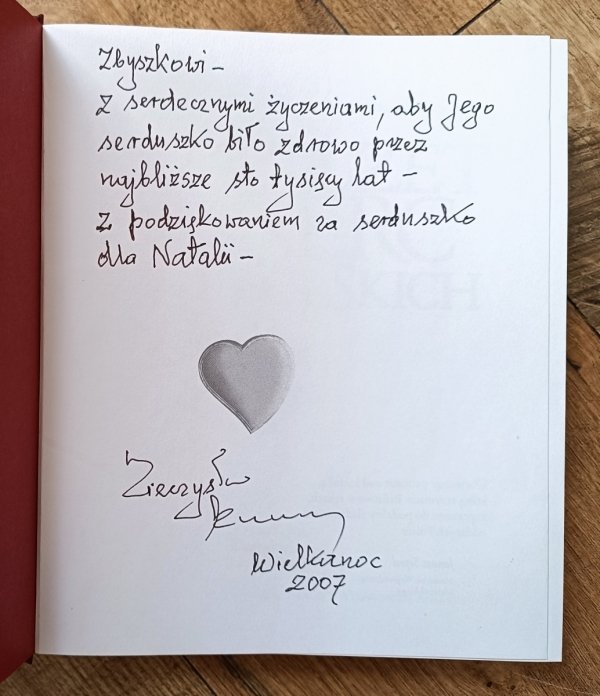 Zbyszkowi –
z serdecznymi życzeniami, aby Jego
serduszko biło zdrowo przez
najbliższe sto tysięcy lat –
z podziękowaniem za serduszko
dla Natalii –
Wielkanoc
2007